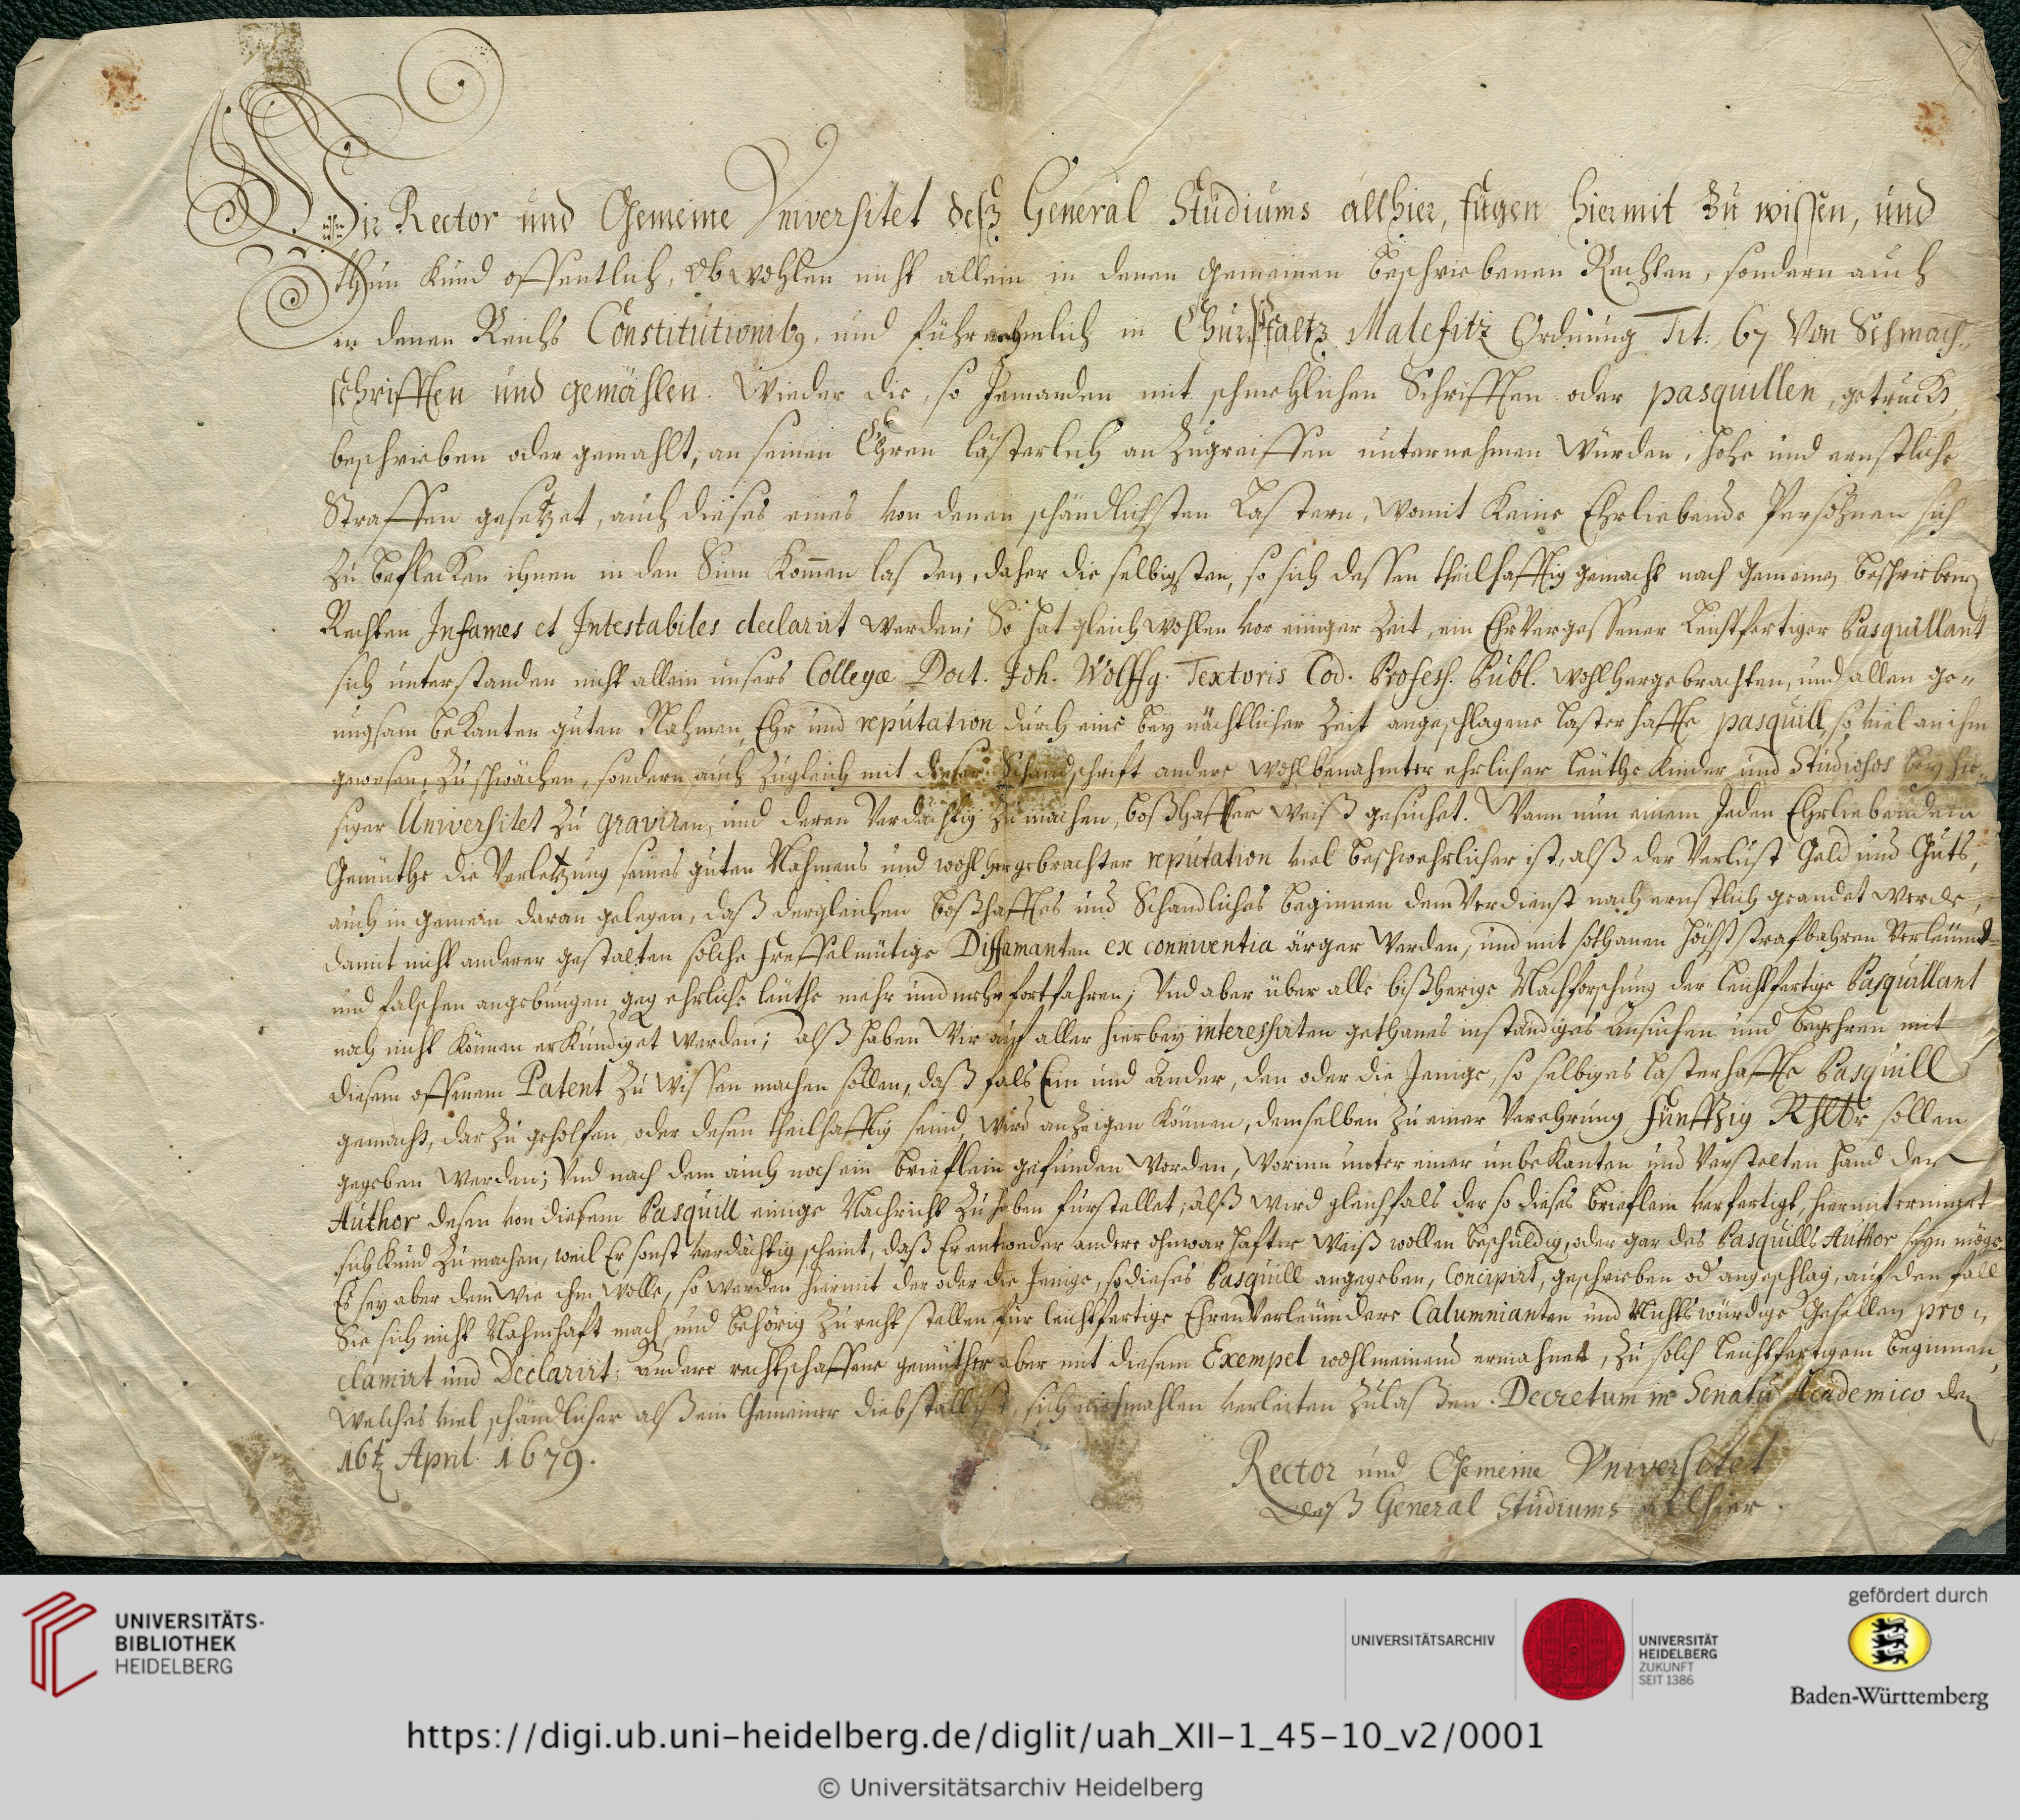 Wir Rector und Gemeine Vniversitet deß General Studiums allhier, fügen hiermit zu wissen, und
thun kund offentlich, Obwohlen nicht allein in denen gemeinen beschriebenen Rechten, sondern auch
in denen Reichs Constitutionibus, und fuhrnehmlich in ChurPfaltz Malefitz Ordnung Tit: 67 Von Schmach-
schrifften und gemählen. Wieder die, so Jemanden mit schmehlichen Schrifften oder pasquillen, getruckt,
beschrieben oder gemahlt, an seinen Ehren lästerlich anzugreiffen unternehmen würden, hohe und ernstliche
Straffen gesetzet, auch dieses eines von denen schändlichsten Lastern, womit keine Ehrliebende Persohnen sich
zu beflecken ihnen in den Sinn kommen laßen, daher die selbigsten, so sich dessen theilhafftig gemacht nach gemeinen beschriebenen
Rechten Infames et Intestabiles declarirt werden; So hat gleichwohlen vor einiger Zeit, ein Ehrvergessener Leichtfertiger Pasquillant
sich unterstanden nicht allein unsers Collegæ Doct. Joh. Wolffg. Textoris Cod. Profess. Publ. wohlhergebrachten, und allen ge-
nugsam bekanten guten Nahmen, Ehr und reputation durch eine bey nächtlicher Zeit angeschlagene lasterhaffte pasquill, so viel an ihm
gewesen, zu schwächen, sondern auch zugleich mit dieser Schandschrift andere wohlbenahmter ehrlicher Leuthe Kinder und Studiosos bey hie-
siger Universitet zu graviren, und deren verdächtig zu machen, boßhaffter weiß gesuchet. Wann nun einem Jeden Ehrliebendem
Gemüthe die Verletzung seines guten Nahmens und wohl hergebrachter reputation viel beschwehrlicher ist, alß der Verlust Geld und Guts,
auch in gemein daran gelegen, daß dergleichen boßhafftes und Schandliches beginnen dem Verdienst nach ernstlich geandet werde,
damit nicht anderer gestalten solche freffelmütige Diffamanten ex conniventia ärger werden, und mit sothanen höchst strafbahren Verleumd-
und falschen angebungen geg ehrliche leuthe mehr und mehr fortfahren; Vnd aber über alle bißherige Nachforschung der leichtfertige Pasquillant
noch nicht können erkundiget werden; alß haben Wir auf aller hierbey interessirten gethanes inständiges Ansuchen und begehren mit
diesem offenem Patent zu wissen machen sollen, daß fals Ein und Ander, den oder die Jenige, so selbiges lasterhaffte Pasquill
gemacht, darzu geholfen, oder desen theilhafftig seind, wird anzeigen können, demselben zu einer Verehrung fünffzig Rthlr sollen
gegeben werden; Vnd nach dem auch noch ein brieflein gefunden worden, worinn unter einer unbekanten und verstelten Hand der
Author desen von diesem Pasquill einige Nachricht zu haben fürstellet; alß wird gleichfals der so dieses brieflein verfertigt, hiermit erinnert
sich kund zu machen, weil Er sonst verdächtig scheint, daß Er entweder andere ohnwarhafter weiß wollen beschuldig, oder gar des Pasquills Author seyn möge.
Es sey aber dem wie ihm wolle, so werden hiermit der oder die Jenige, so dieses Pasquill angegeben, Concipirt, geschrieben od angeschlag, auf den fall
Sie sich nicht Nahmhaft mach und behörig zu recht stellen für leichtfertige Ehren Verleumdere Calumnianten und Nichtswürdige Gesellen pro-
clamirt und Declarirt; Andere rechtschaffene gemüther aber mit diesem Exempel wohlmeinend ermahnet, zu solch leichtfertigem beginnen,
welches viel schändlicher alß ein Gemeiner diebstall ist, sich niemahlen verleiten zulaßen. Decretum in Senatu Academico den
16t April 1679.
Rector und Gemeine Vniversitet
deß General Studiums allhier.
UNIVERSITÄTS-
BIBLIOTHEK
HEIDELBERG
UNIVERSITÄTSARCHIV
UNIVERSITÄT
HEIDELBERG
ZUKUNFT
SEIT 1386
gefördert durch
Baden-Württemberg
https://digi.ub.uni-heidelberg.de/diglit/uah_XII-1_45-10_v2/0001
© Universitätsarchiv Heidelberg